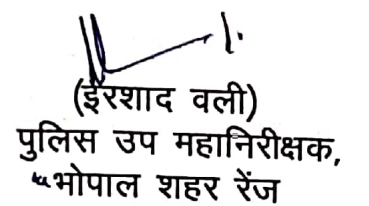 (ईरशाद वली)
पुलिस उप महानिरीक्षक,
भोपाल शहर रेंज